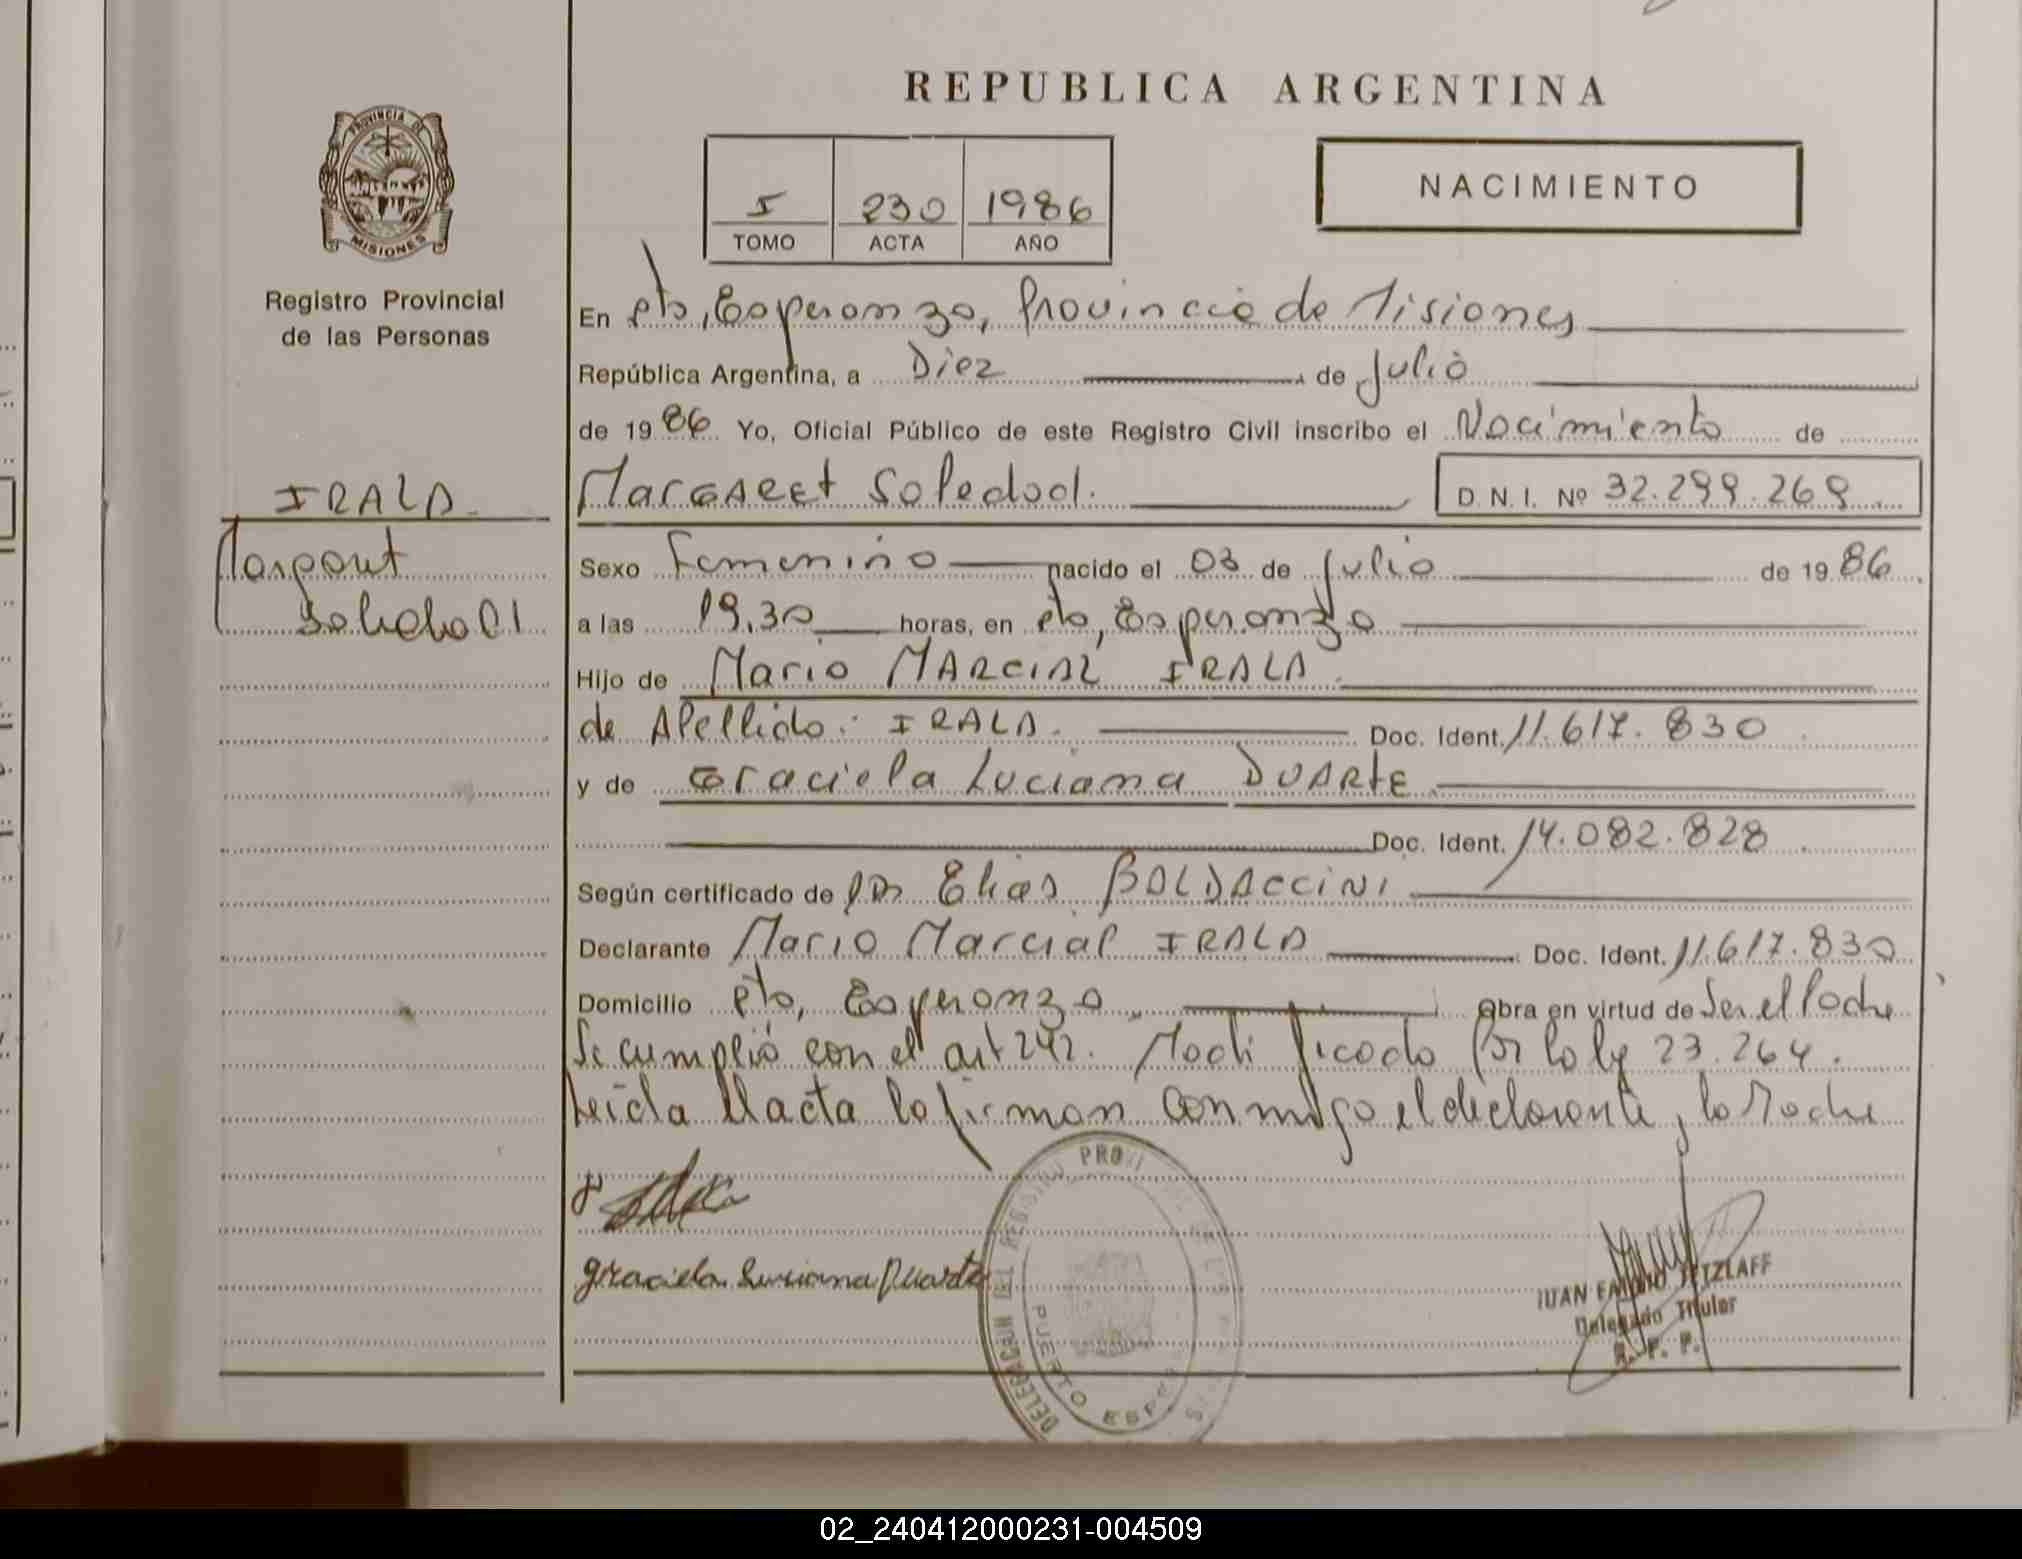 REPUBLICA ARGENTINA
PROVINCIA DE
MISIONES
Registro Provincial
de las Personas
I 230 1986
TOMO ACTA AÑO
NACIMIENTO
En Pto, Esperanza, Provincia de Misiones
República Argentina, a Diez de Julio
de 1986 Yo, Oficial Público de este Registro Civil inscribo el Nacimiento de
IRALA
Margaret Soledad. D. N. I. Nº 32.299.269
Margaret
Soledad
Sexo Femenino nacido el 03 de Julio de 1986
a las 19,30 horas, en Pto, Esperanza
Hijo de Mario MARCIAL IRALA
de Apellido: IRALA. Doc. Ident. 11.617.830
y de Graciela Luciana DUARTE
Doc. Ident. 14.082.828
Según certificado de Elias BALDACCINI
Declarante Mario Marcial IRALA Doc. Ident. 11.617.830
Domicilio Pto, Esperanza Obra en virtud de Ser el Padre
Se cumplió con el art 242. Modificado Por la ley 23.264.
Leida el acta la firman conmigo el declarante, la Madre
Graciela Luciana Duarte
DELEGACION DEL REGISTRO
PUERTO
JUAN
Delegado Titular
R. P. P.
02_240412000231-004509